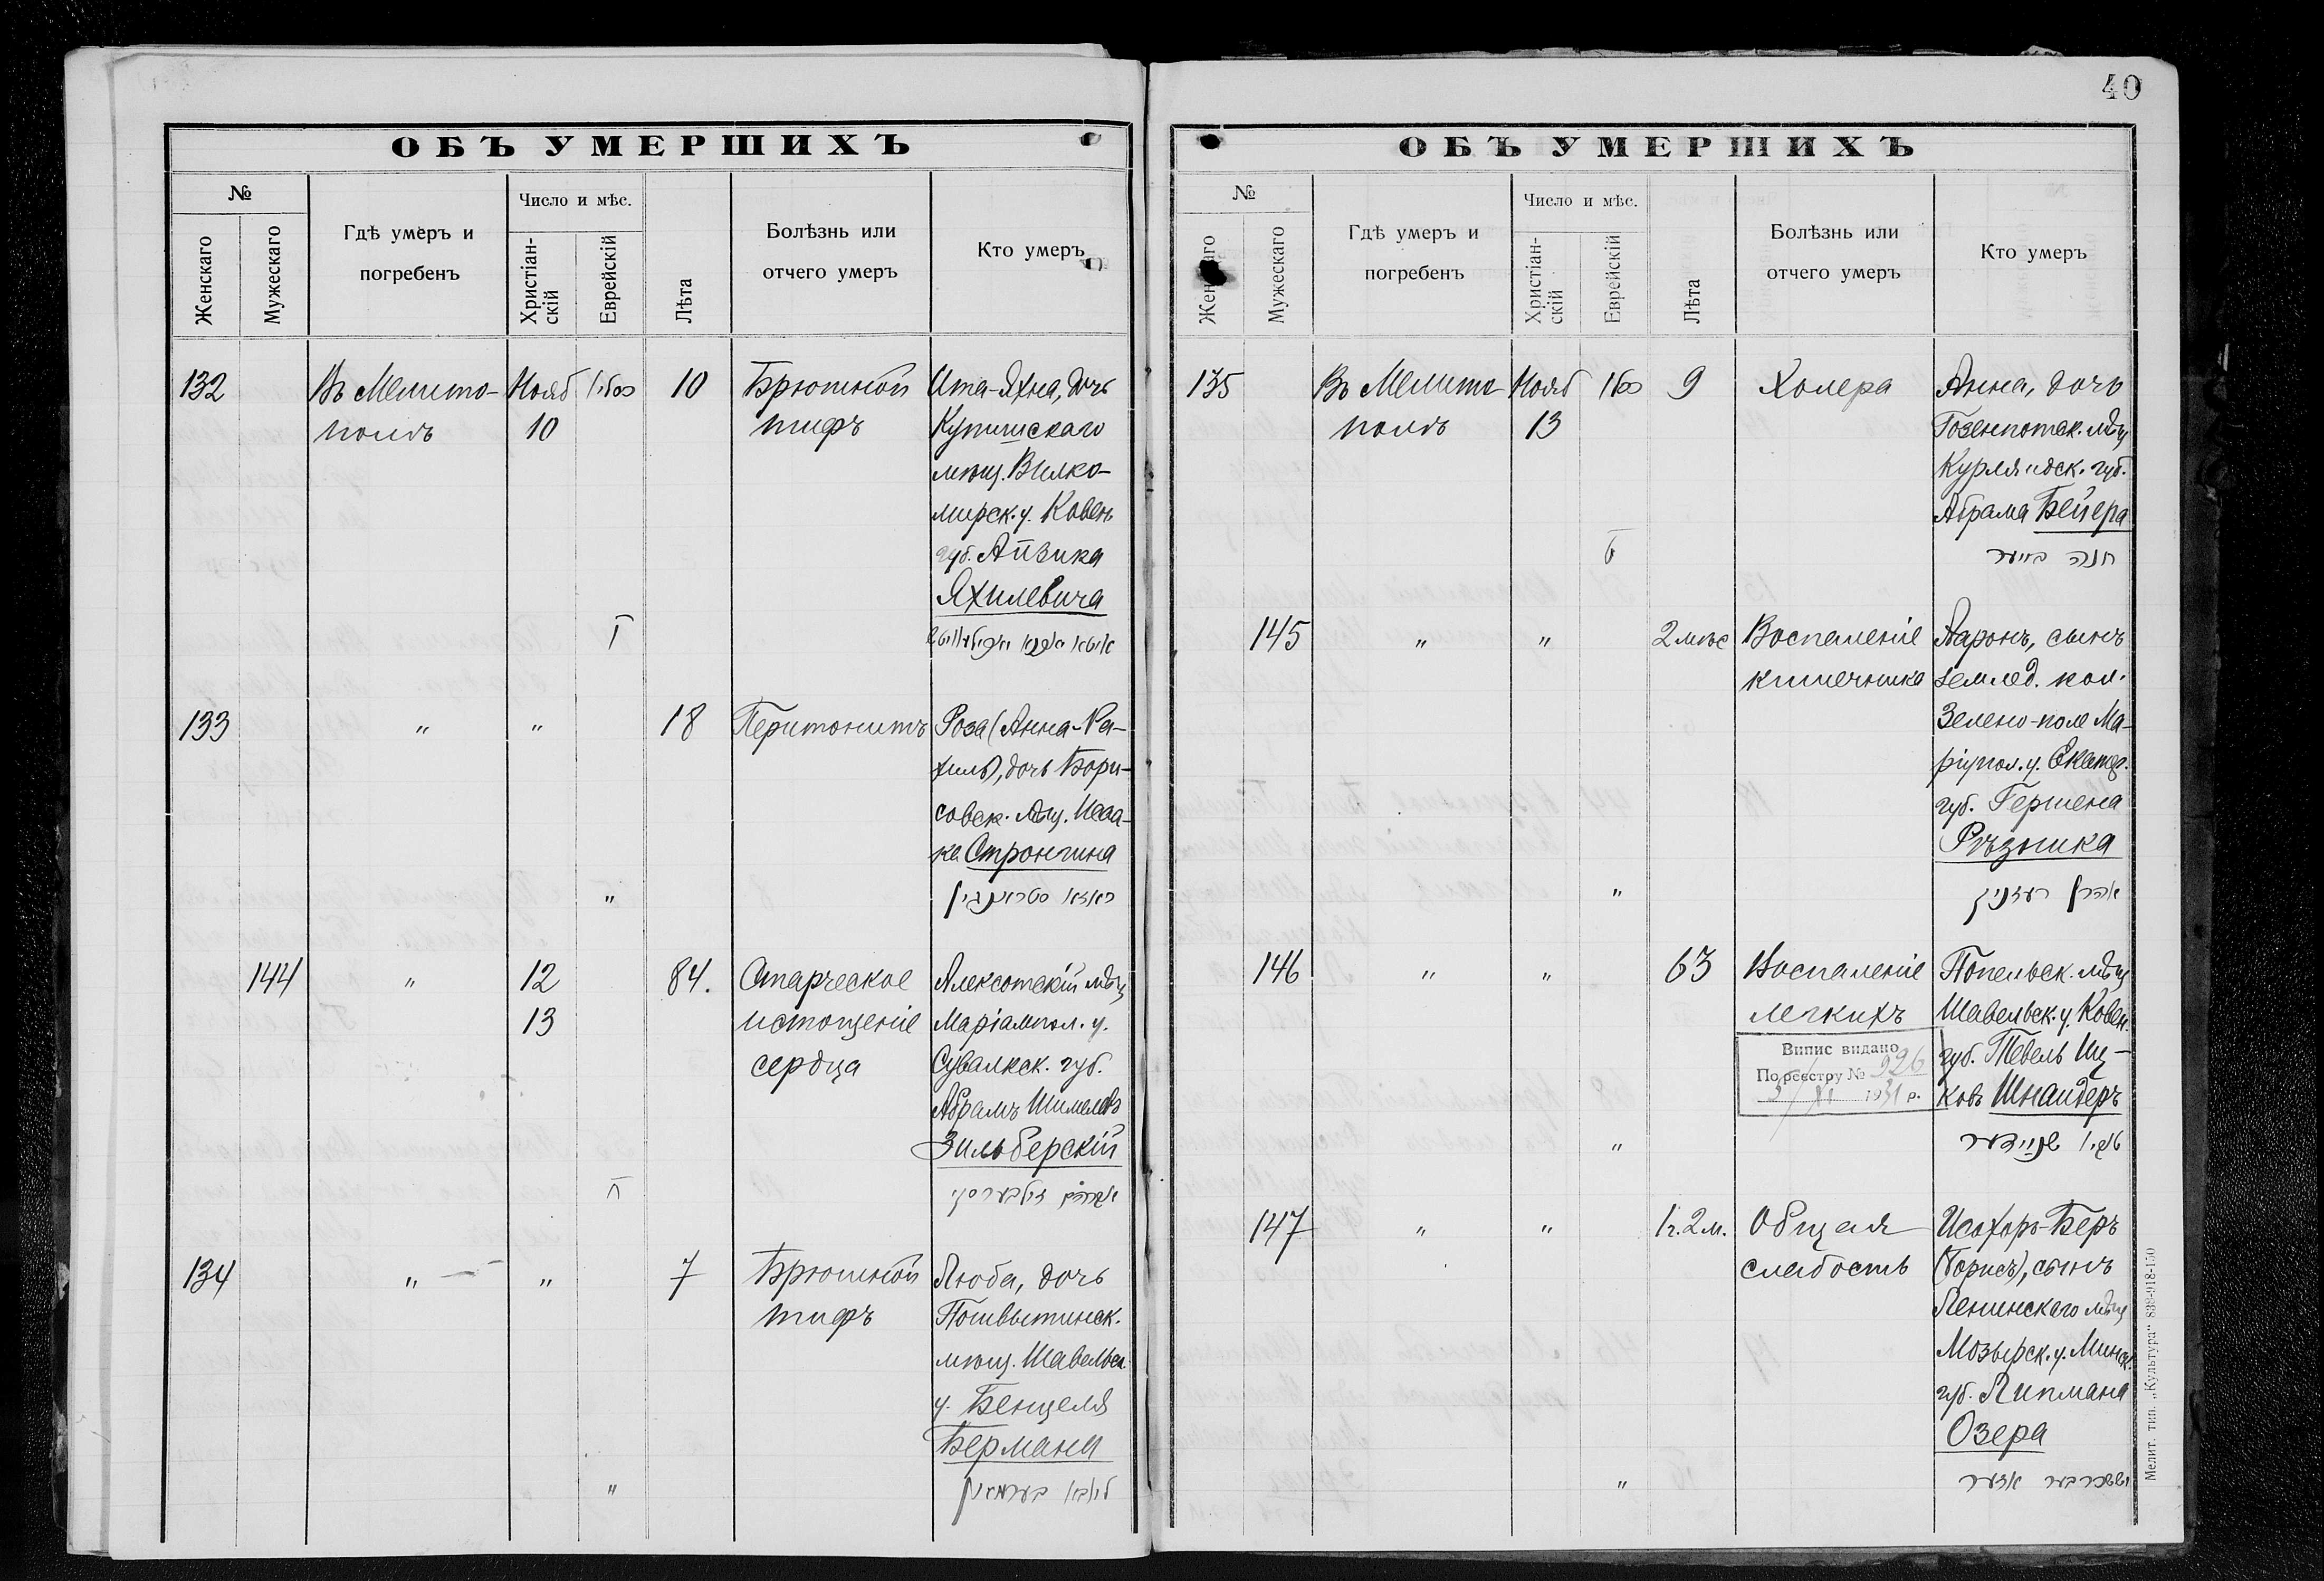 40
ОБЪ УМЕРШИХЪ
№
Женскаго
Мужескаго
Гдѣ умеръ и
погребенъ
Число и мѣс.
Христіан-
скій
Еврейскій
Лѣта
Болѣзнь или
отчего умеръ
Кто умеръ
132
Въ Мелито-
полѣ
Нояб
10
10
Брюшной
тифъ
Ита-Яхна, дочь
Купишскаго
мѣщ. Вилко-
мирск. у. Ковен
губ. Айзика
Яхилевича
133
"
"
"
18
Перитонитъ
Роза (Анна-Ра-
хиль), дочь Бори-
совск. мѣщ. Исаа-
ка Стронгина
144
"
12
13
84.
Старческое
истощеніе
сердца
Алексотскій мѣщ
Маріампол. у.
Сувалкск. губ.
Абрамъ Шимелевъ
Зильберскій
134
"
"
"
7
Брюшной
тифъ
Люба, дочь
Пошвытинск.
мѣщ. Шавельск.
у. Бенцеля
Бермана
ОБЪ УМЕРШИХЪ
№
Женскаго
Мужескаго
Гдѣ умеръ и
погребенъ
Число и мѣс.
Христіан-
скій
Еврейскій
Лѣта
Болѣзнь или
отчего умеръ
Кто умеръ
135
Въ Мелито
полѣ
Нояб
13
9
Холера
Анна, дочь
Газенпотск. мѣщ
Курляндск. губ.
Абрама Бейера
חנה בייער
145
"
"
"
2 мѣс
Воспаленіе
кишечника
Ааронъ, сынъ
землед. кол.
Зелено-поле Ма-
ріупол. у. Екатер.
губ. Гершена
Рѣзника
אהרן רעזניק
146
"
"
"
63
Воспаленіе
легкихъ
Випис видано
По реєстру № 926
5/XI 1931 р.
Попельск. мѣщ
Шавельск. у. Ковен.
губ. Тевель Иц-
ковъ Шнайдеръ
שניידער
147
"
"
"
1г. 2м.
Общая
слабость
Исохоръ-Беръ
(Борисъ), сынъ
Ленинскаго мѣщ
Мозырск. у. Минск.
губ. Липмана
Озера
Мелит. тип. „Культура“ 838-918-150